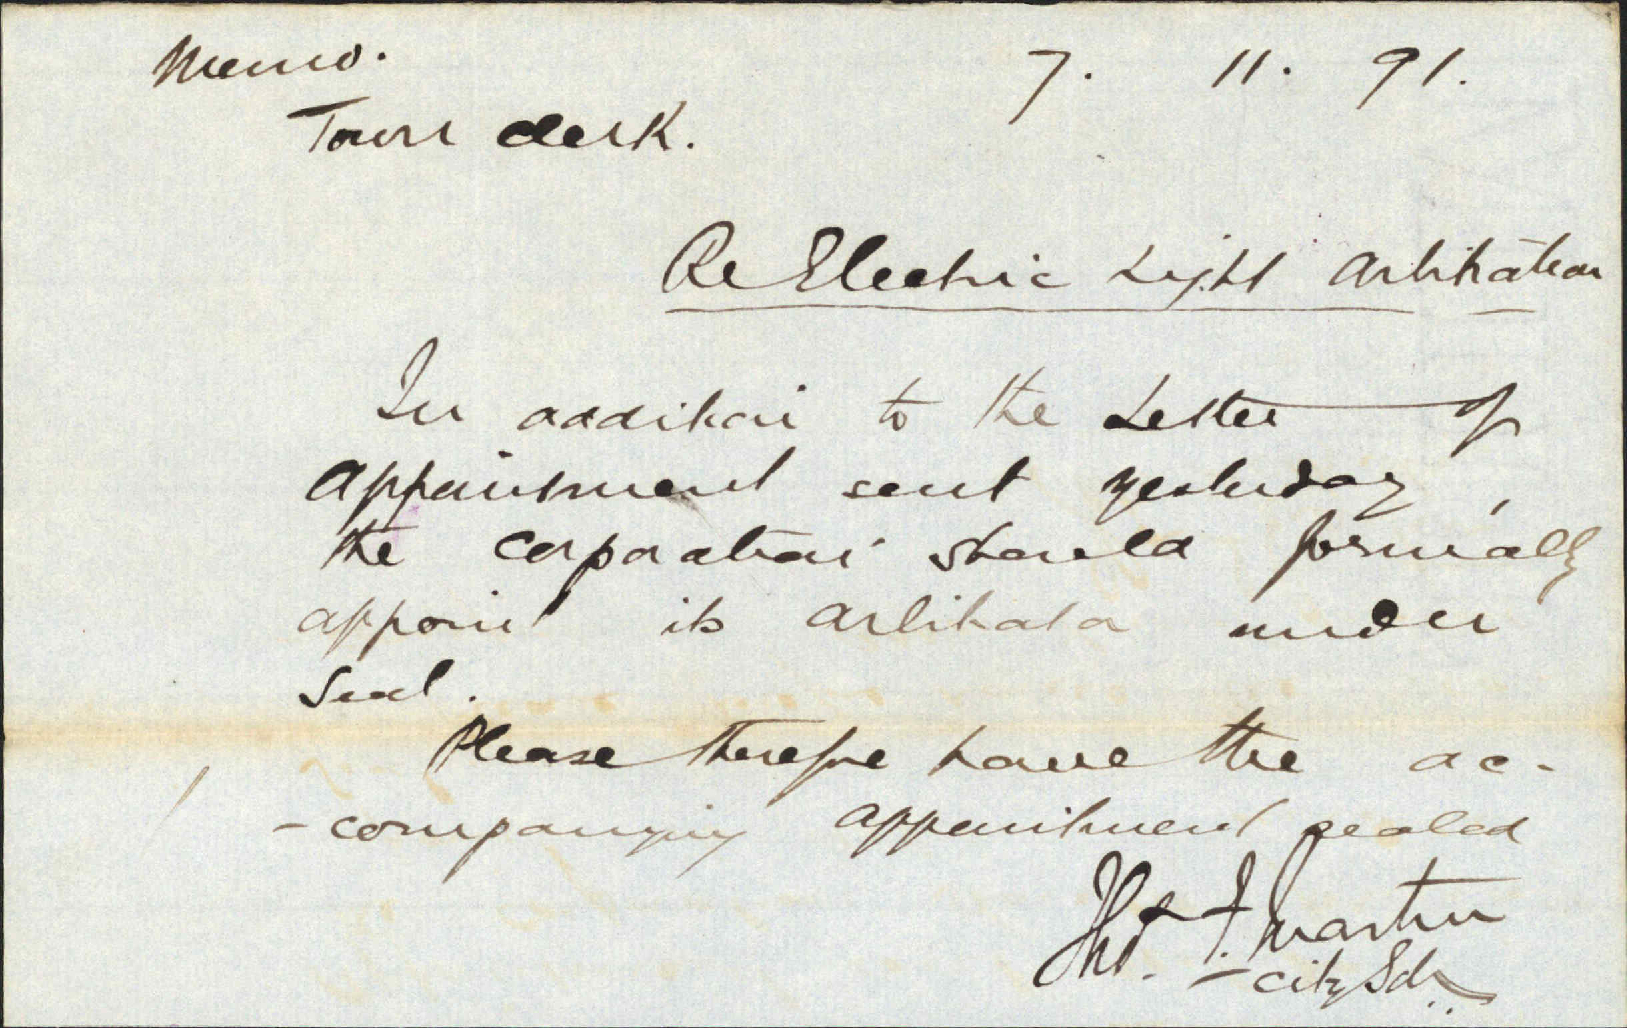 Memo. 7. 11. 91.
Town Clerk.
Re Electric Light Arbitration
In addition to the Letter of
appointment sent yesterday,
the Corporation should formally
appoint its Arbitrator under
Seal.
Please therefore have the ac-
-companying appointment sealed
Thos. F. Martin
- City Solr.